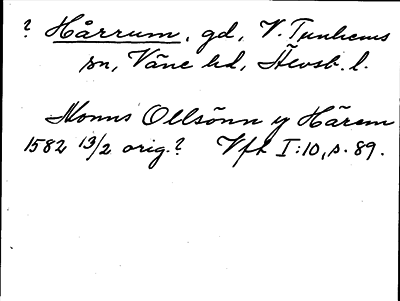 ? Hårrum, gd, V. Tunhems
sn, Väne hd, Älvsb. l.
Monns Ollsönn y Härem
1582 13/2 orig.? Vft I:10, s. 89.